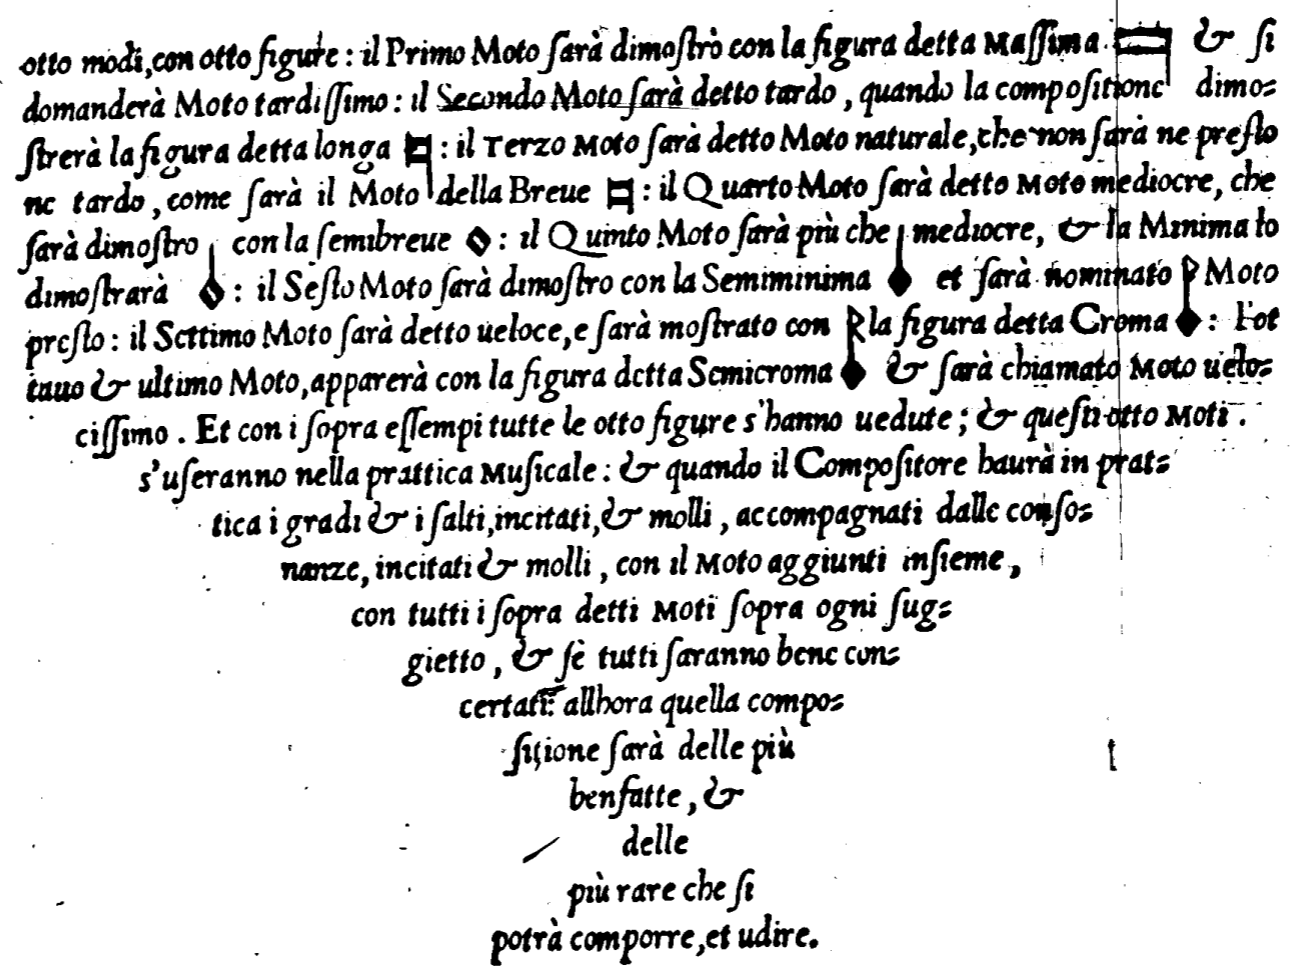 otto modi, con otto figure : il Primo Moto ſarà dimoſtrò con la figura detta Maſſima & ſi
domanderà Moto tardiſſimo : il Secondo Moto ſarà detto tardo , quando la compoſitione dimo=
ſtrerà la figura detta longa : il Terzo Moto ſarà detto Moto naturale, che non ſarà ne preſto
ne tardo , come ſarà il Moto della Breue : il Quarto Moto ſarà detto Moto mediocre, che
ſarà dimoſtro con la ſemibreue : il Quinto Moto ſarà più che mediocre, & la Minima lo
dimoſtrarà : il Seſto Moto ſarà dimoſtro con la Semiminima et ſarà nominato Moto
preſto : il Settimo Moto ſarà detto ueloce, e ſarà moſtrato con la figura detta Croma : l'ot
tauo & ultimo Moto, apparerà con la figura detta Semicroma & ſarà chiamato Moto uelo=
ciſſimo . Et con i ſopra eſſempi tutte le otto figure s'hanno uedute ; & queſti otto Moti .
s'uſeranno nella prattica Muſicale : & quando il Compoſitore haurà in prat=
tica i gradi & i ſalti, incitati, & molli , accompagnati dalle conſo=
nanze, incitati & molli , con il Moto aggiunti inſieme ,
con tutti i ſopra detti Moti ſopra ogni ſug=
gietto , & ſè tutti ſaranno bene con=
certati: allhora quella compo=
ſitione ſarà delle più
benfatte , &
delle
più rare che ſi
potrà comporre, et udire.